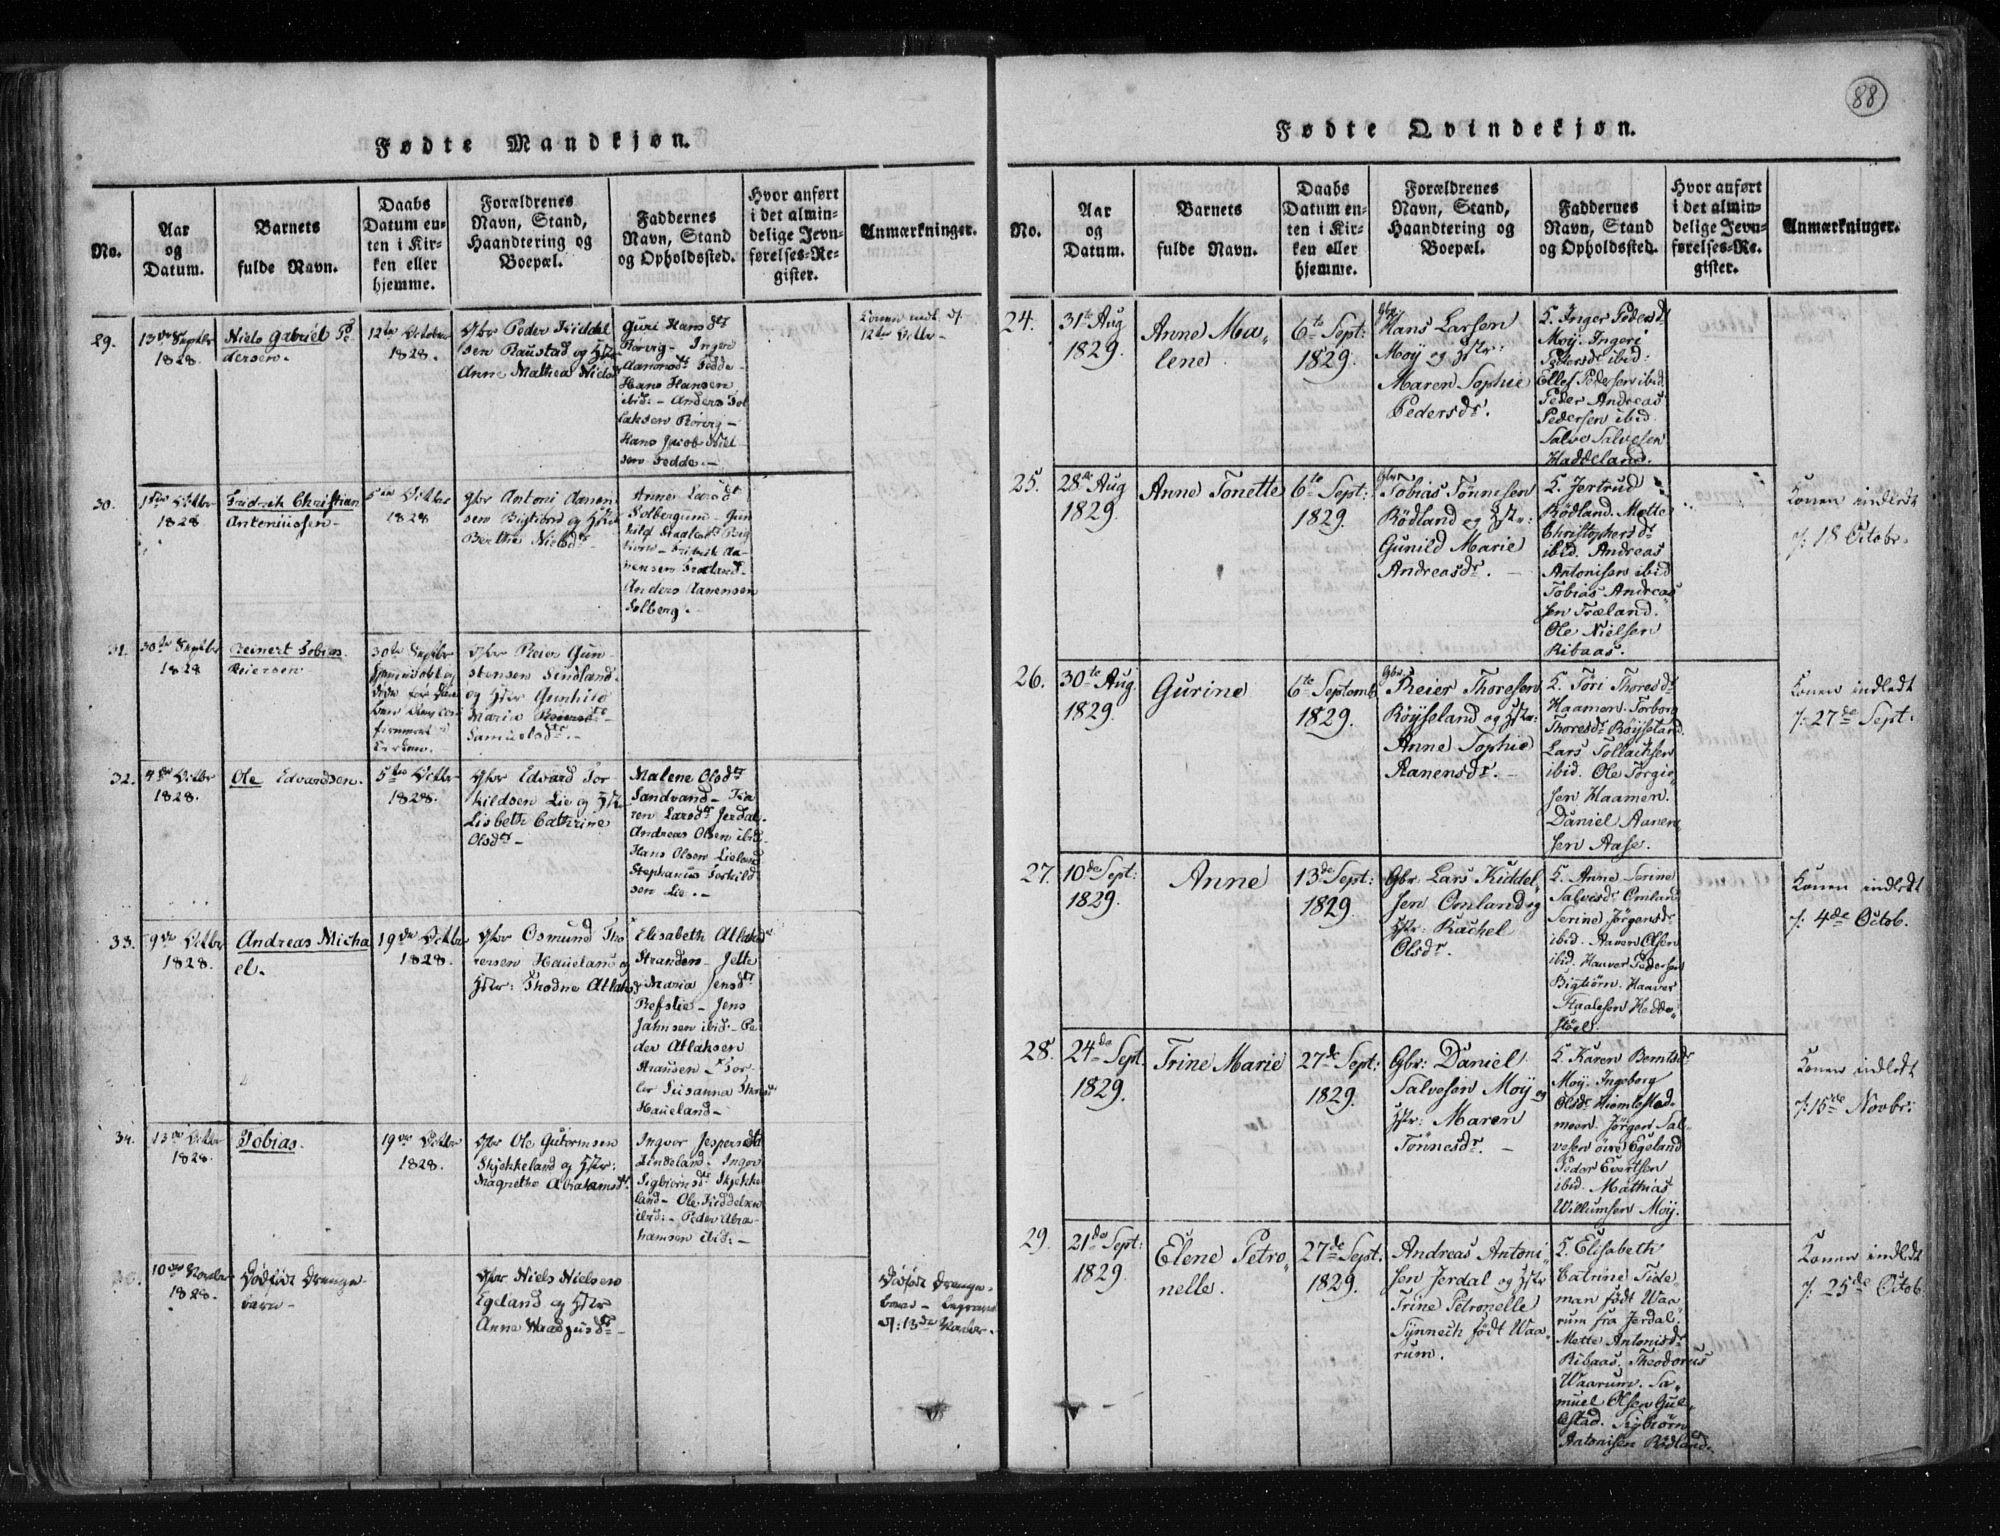 88
Fødte Mandkjøn.
No.
Aar
og
Datum.
Barnets
fulde Navn.
Daabs
Datum en-
ten i Kir-
ken eller
hjemme.
Forældrenes
Navn, Stand,
Haandtering og
Boepæl.
Faddernes
Navn, Stand
og Opholdssted.
Hvor anført
i det almin-
delige Jevn-
førelses-Re-
gister.
Anmærkninger.
29.
13de Septbr
1828.
Niels Gabriel Pe
dersen.
12te Octobr
1828.
Gbr Peder Kiddel
sen Raustad og Hstr
Anne Mathea Nielsd
Guri Hansdtr
Rørvig - Inger
Aamondsdtr Fedde -
Hans Hansen
ibid: - Anders Tol
laksen Rørvig -
Hans Jacob Niel
sen Fedde. -
Konen indl. d/
12te Octbr -
30.
1ste Octbr
1828
Fridrik Christian
Antoniussen -
5te Octbr
1828
Gbr Antoni Aanen
sen Bigtiørn og Hstr
Berthe Nielsdtr -
Anne Larsdtr
Solbergum - Gun
hild Staalesdtr Big
tiørn - Fridrik Aa-
nensen Træland -
Anders Aanensen
Solberg. -
31.
30te Septbr
1828
Reinert Tobias
Reiersen
30te Septbr
Hjemmedøbt og
døde før Daa
ben blev con
firmeret i
Kirken.
Gbr Reier Gun
stensen Sindland
og Hstr Gunhild
Maria
Samuelsdtr. -
32.
4de Octbr
1828.
Ole Edvardsen.
5te Octbr
1828.
Gbr Edvard Tor
kildsen Lie og Hstr
Lisbeth Cathrine
Olsdtr -
Malene Olsdtr
Sandvand - Ka
ren Larsdtr Jerdal.
Andreas Olsen ibid
Hans Olsen Lieland
Stephanus Torkild
sen Lie. -
33.
9de Octbr
1828.
Andreas Micha
el.
19de Octbr
1828.
Gbr Osmund Tho
resen Haueland og
Hstr: Thodne Atlaksd
Elisabeth Atlaksdtr
Stranden - Jette
Maria Jensdtr
Refslie - Jens
Jahnsen ibid: - Pe
der Atlaksen
Stransen - Tor
ler Susanna Thoresd
Haueland -
34.
13de Octbr
1828.
Tobias.
19de Octbr
1828.
Gbr Ole Gutormsen
Skjekkeland og Hstr:
Magnethe Abrahamsdtr.
Ingver Jespersdtr
Lindeland. Inger
Sigbiørnsdtr Skjekke
land - Ole Kiddelsen
ibid: - Peder Abra-
hamsen ibid: -
10de Novbr
1828.
Dødfødt Drenge-
barn -
Gbr Niels Nielsen
Egeland og Hstr
Anne
Dødfødt Drenge-
barn - begravet
d/: 13de Novbr. -
Fødte Qvindekjøn.
No.
Aar
og
Datum.
Barnets
fulde Navn.
Daabs
Datum en-
ten i Kir-
ken eller
hjemme.
Forældrenes
Navn, Stand,
Haandtering og
Boepæl.
Faddernes
Navn, Stand
og Opholdssted.
Hvor anført
i det almin-
delige Jevn-
førelses-Re-
gister.
Anmærkninger.
24.
31te Aug
1829.
Anne Ma„
lene.
6te Sept:
1829.
Gbr
Hans Larsen
Moÿ og Hstr:
Maren Sophie
Pedersdr.
K. Inger Pedersd
Moÿ. Ingeri
Pedersdr ibid:
Ellef Pedersen ibid
Peder Andreas
Pedersen ibid.
Salve Salvesen
Haddeland.
25.
28de Aug
1829.
Anne Tonette
6te Sept:
1829.
Gbr
Tobias Tönnesen
Rödland og Hstr:
Gunild Marie
Andreasdr. -
K. Jertrud
Rödland. Mette
Christophersdr
ibid. Andreas
Antonisen ibid
Tobias Andreas„
sen Træland.
Ole Nielsen
Ribaas.
Konen indledt
d/: 18 Octobr.
26.
30te Aug.
1829.
Gurine
6te Septemb.
1829.
Gbr
Reier Thoresen
Röÿseland og Hstr:
Anne Sophie
Aanensdr. -
K. Töri Thoresdr
Haamen. Torborg
Thoresdr Röÿseland.
Lars Tollachsen
ibid. Ole Torgie„
sen Haamen.
Daniel Aanen„
sen Aase.
Konen indledt
d/: 27de Sept:
27.
10de Sept:
1829.
Anne
13de Sept:
1829.
Gbr Lars Kiddel„
sen Omland og
Hstr: Rachel
Olsdr.
K. Anne Serine
Salvesdr Omland
Serine Jörgensdr
ibid. Aanen Olsen
ibid. Haaver Pedersen
Bigtiörn. Haaver
Staalesen Hedde„
stöel.
Konen indledt
d/: 4de Octob.
28.
24de Sept
1829.
Trine Marie
27de Sept:
1829.
Gbr: Daniel
Salvesen Moÿ og
Hstr: Maren
Tönnesdr. -
K. Karen Berntsdr
Moÿ. Ingeborg
Olsdr Hiemlestad„
moen. Jörgen Sal„
vesen övre Egeland
Peder Evertsen
ibid. Mathias
Willumsen Moÿ.
Konen indledt
d/: 15de Novbr:
29.
21de Sept:
1829.
Elene Petro„
nelle.
27de Sept.
1829.
Andreas Antoni„
sen Jerdal og Hstr
Trine Petronelle
Sÿnnech födt Waa„
rum.
K. Elisabeth
Catrine Tide„
man födt Waa„
rum fra Jerdal.
Mette Antonisdr
Ribaas. Theodorus
Waarum. Sa„
muel Olsen Gul„
lestad. Sigbiörn
Antonisen Rödland.
Konen indledt
d/: 25de Octob